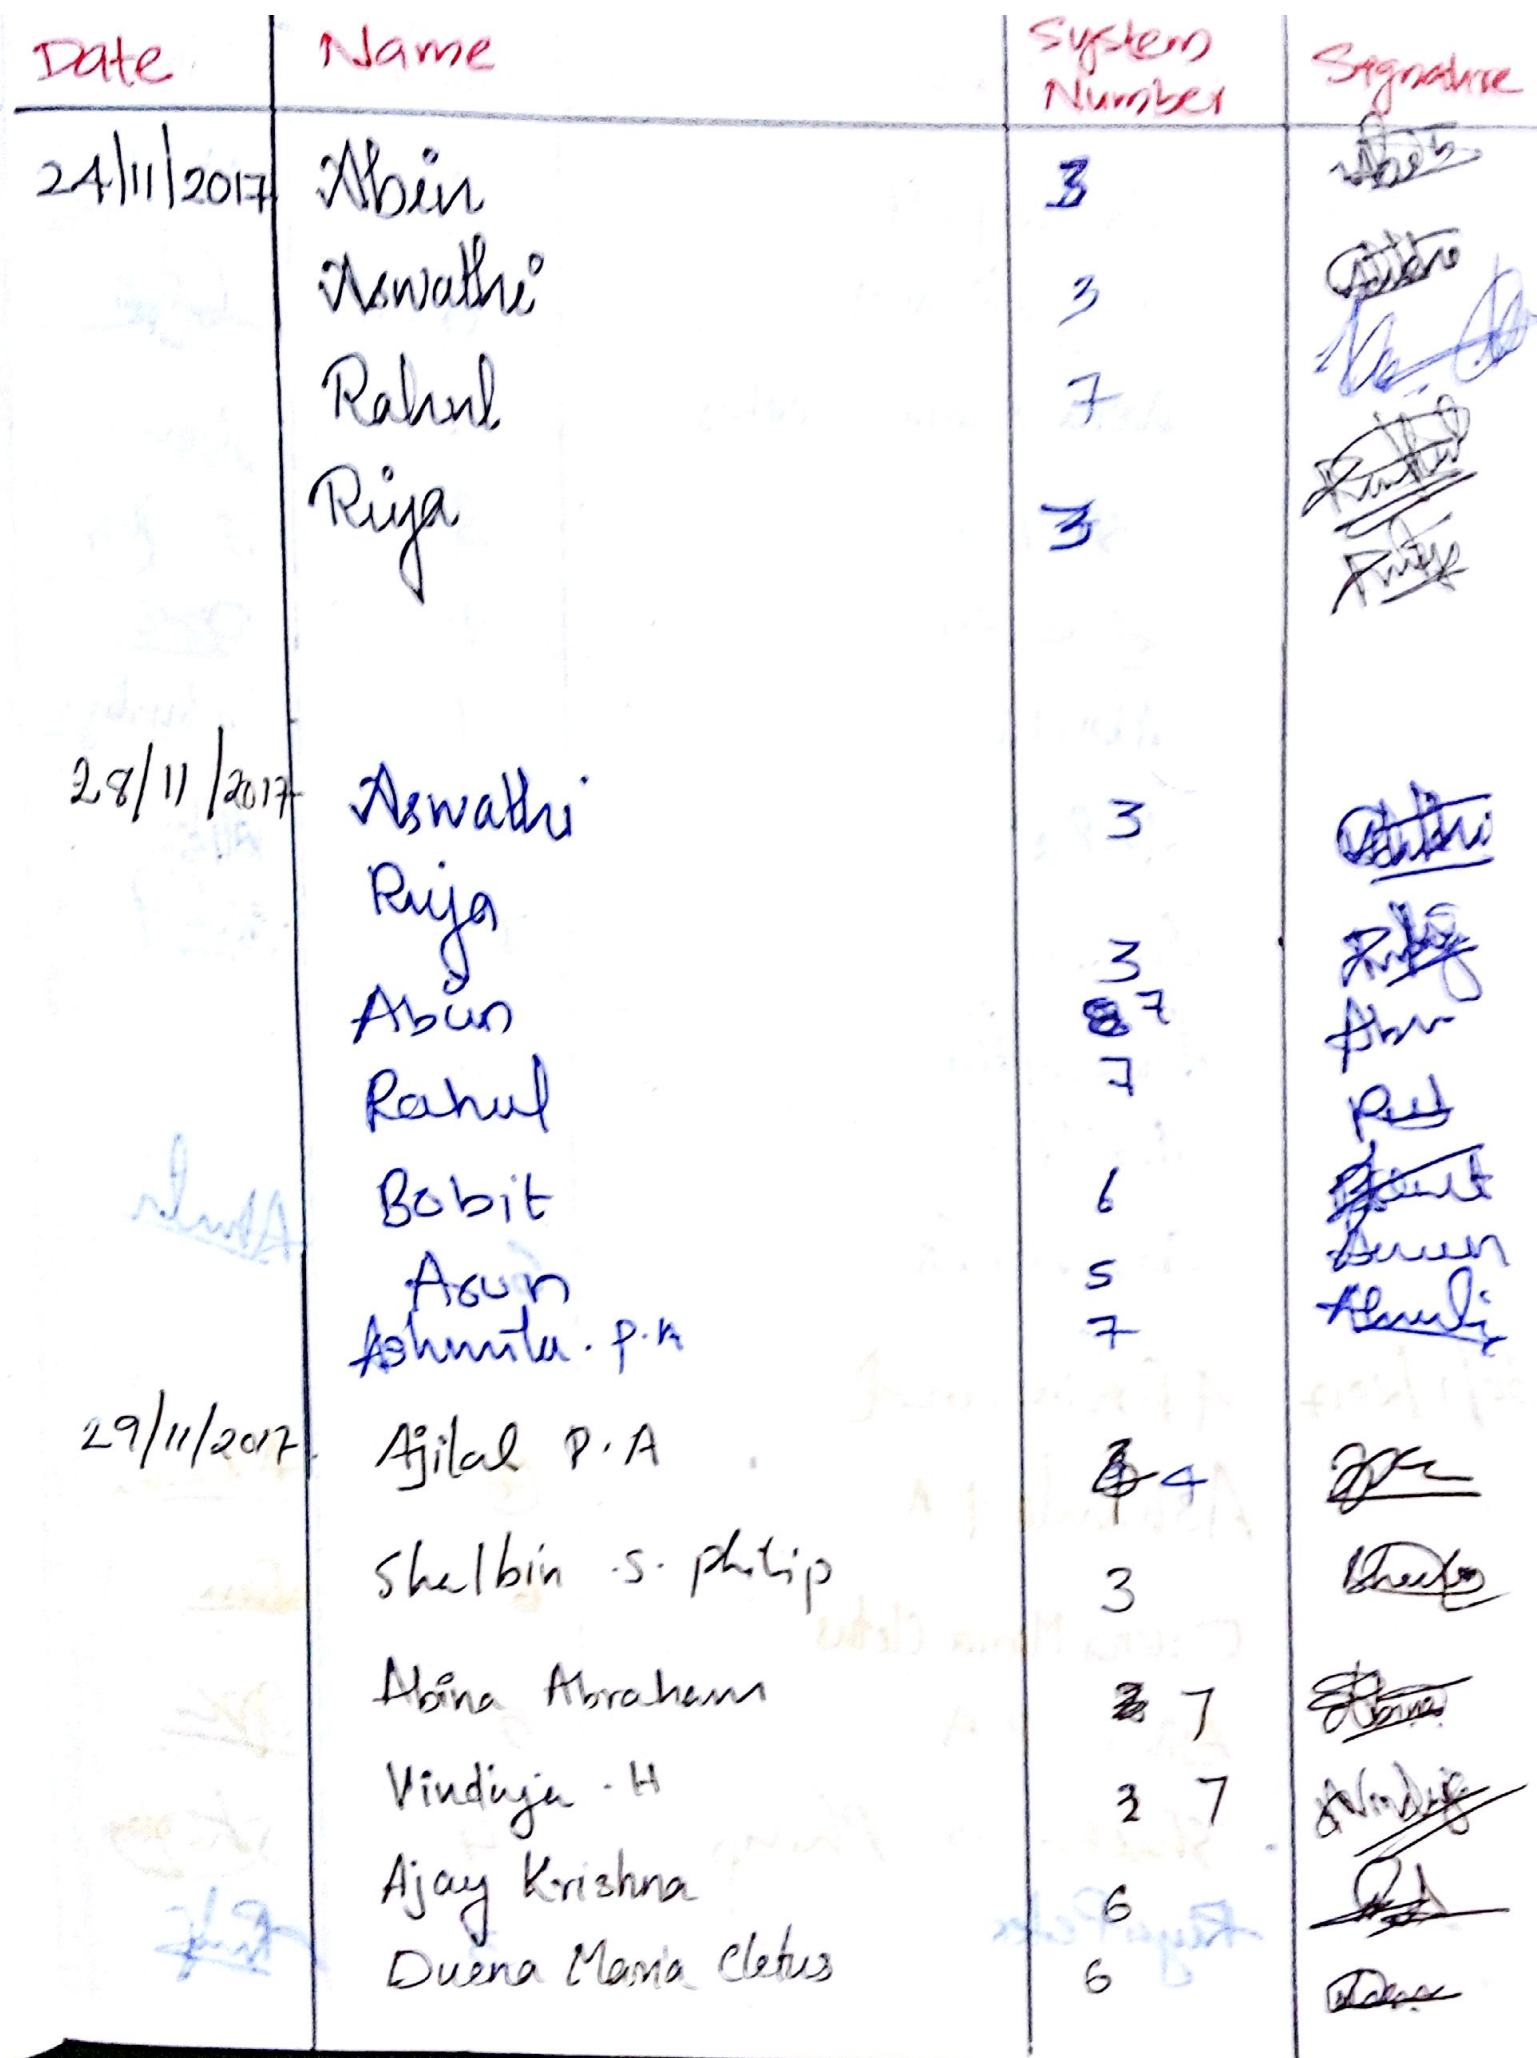 Date Name System Number Signature
24/11/2017 Abin 3
Aswathi 3
Rahul 7
Riya 3
28/11/2017 Aswathi 3
Riya 3
Abin 7
Rahul 7
Bobit 6
Arun 5 Arun
Ashmita. P.A 7
29/11/2017 Ajilal P.A 4
Shelbin .S. philip 3
Abina Abraham 7
Vinduja . H 3 7
Ajay Krishna 6
Duena Maria Cletus 6